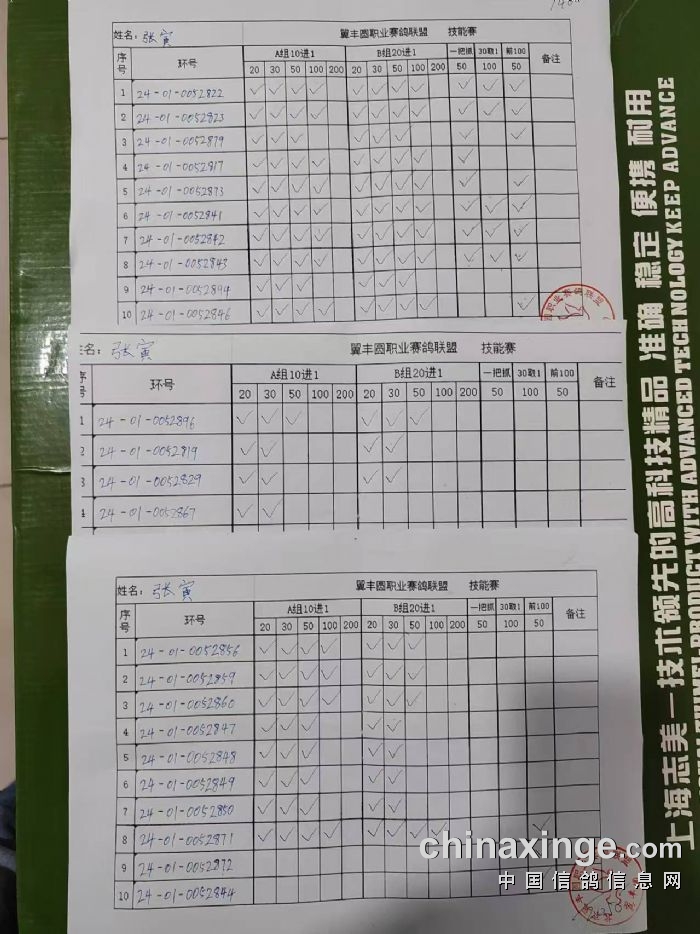 姓名: 张寅 翼丰圆职业赛鸽联盟 技能赛
序号 环号 A组10进1 B组20进1 一把抓 30取1 前100 备注
20 30 50 100 200 20 30 50 100 200 50 100 50
1 24-01-0052822 ✓ ✓ ✓ ✓ ✓ ✓ ✓ ✓ ✓ ✓ ✓
2 24-01-0052823 ✓ ✓ ✓ ✓ ✓ ✓ ✓ ✓ ✓ ✓ ✓
3 24-01-0052879 ✓ ✓ ✓ ✓ ✓ ✓ ✓ ✓
4 24-01-0052817 ✓ ✓ ✓ ✓ ✓ ✓ ✓ ✓ ✓
5 24-01-0052873 ✓ ✓ ✓ ✓ ✓ ✓ ✓ ✓ ✓ ✓
6 24-01-0052841 ✓ ✓ ✓ ✓ ✓ ✓ ✓ ✓ ✓ ✓ ✓
7 24-01-0052842 ✓ ✓ ✓ ✓ ✓ ✓ ✓ ✓ ✓ ✓ ✓
8 24-01-0052843 ✓ ✓ ✓ ✓ ✓ ✓ ✓ ✓ ✓ ✓ ✓
9 24-01-0052894 ✓ ✓ ✓ ✓ ✓ ✓
10 24-01-0052846 ✓ ✓ ✓ ✓ ✓ ✓ ✓ ✓ ✓
职业赛鸽联盟
姓名: 张寅 翼丰圆职业赛鸽联盟 技能赛
序号 环号 A组10进1 B组20进1 一把抓 30取1 前100 备注
20 30 50 100 200 20 30 50 100 200 50 100 50
1 24-01-0052896 ✓ ✓ ✓ ✓ ✓ ✓
2 24-01-0052819 ✓ ✓ ✓ ✓
3 24-01-0052829 ✓ ✓ ✓ ✓
4 24-01-0052867 ✓ ✓
姓名: 张寅 翼丰圆职业赛鸽联盟 技能赛
序号 环号 A组10进1 B组20进1 一把抓 30取1 前100 备注
20 30 50 100 200 20 30 50 100 200 50 100 50
1 24-01-0052856 ✓ ✓ ✓ ✓ ✓ ✓ ✓
2 24-01-0052859 ✓ ✓ ✓ ✓ ✓ ✓ ✓
3 24-01-0052860 ✓ ✓ ✓ ✓ ✓ ✓ ✓
4 24-01-0052847 ✓ ✓ ✓ ✓ ✓
5 24-01-0052848 ✓ ✓ ✓ ✓ ✓
6 24-01-0052849 ✓ ✓ ✓ ✓ ✓
7 24-01-0052850 ✓ ✓ ✓ ✓ ✓
8 24-01-0052871 ✓ ✓ ✓ ✓ ✓ ✓ ✓ ✓ ✓
9 24-01-0052872
10 24-01-0052844
上海志美一技术领先的高科技精品 准确 稳定 便携 耐用
PRODUCT WITH ADVANCED TECHNOLOGY KEEP ADVANCE
chinaxinge.com
中国信鸽信息网